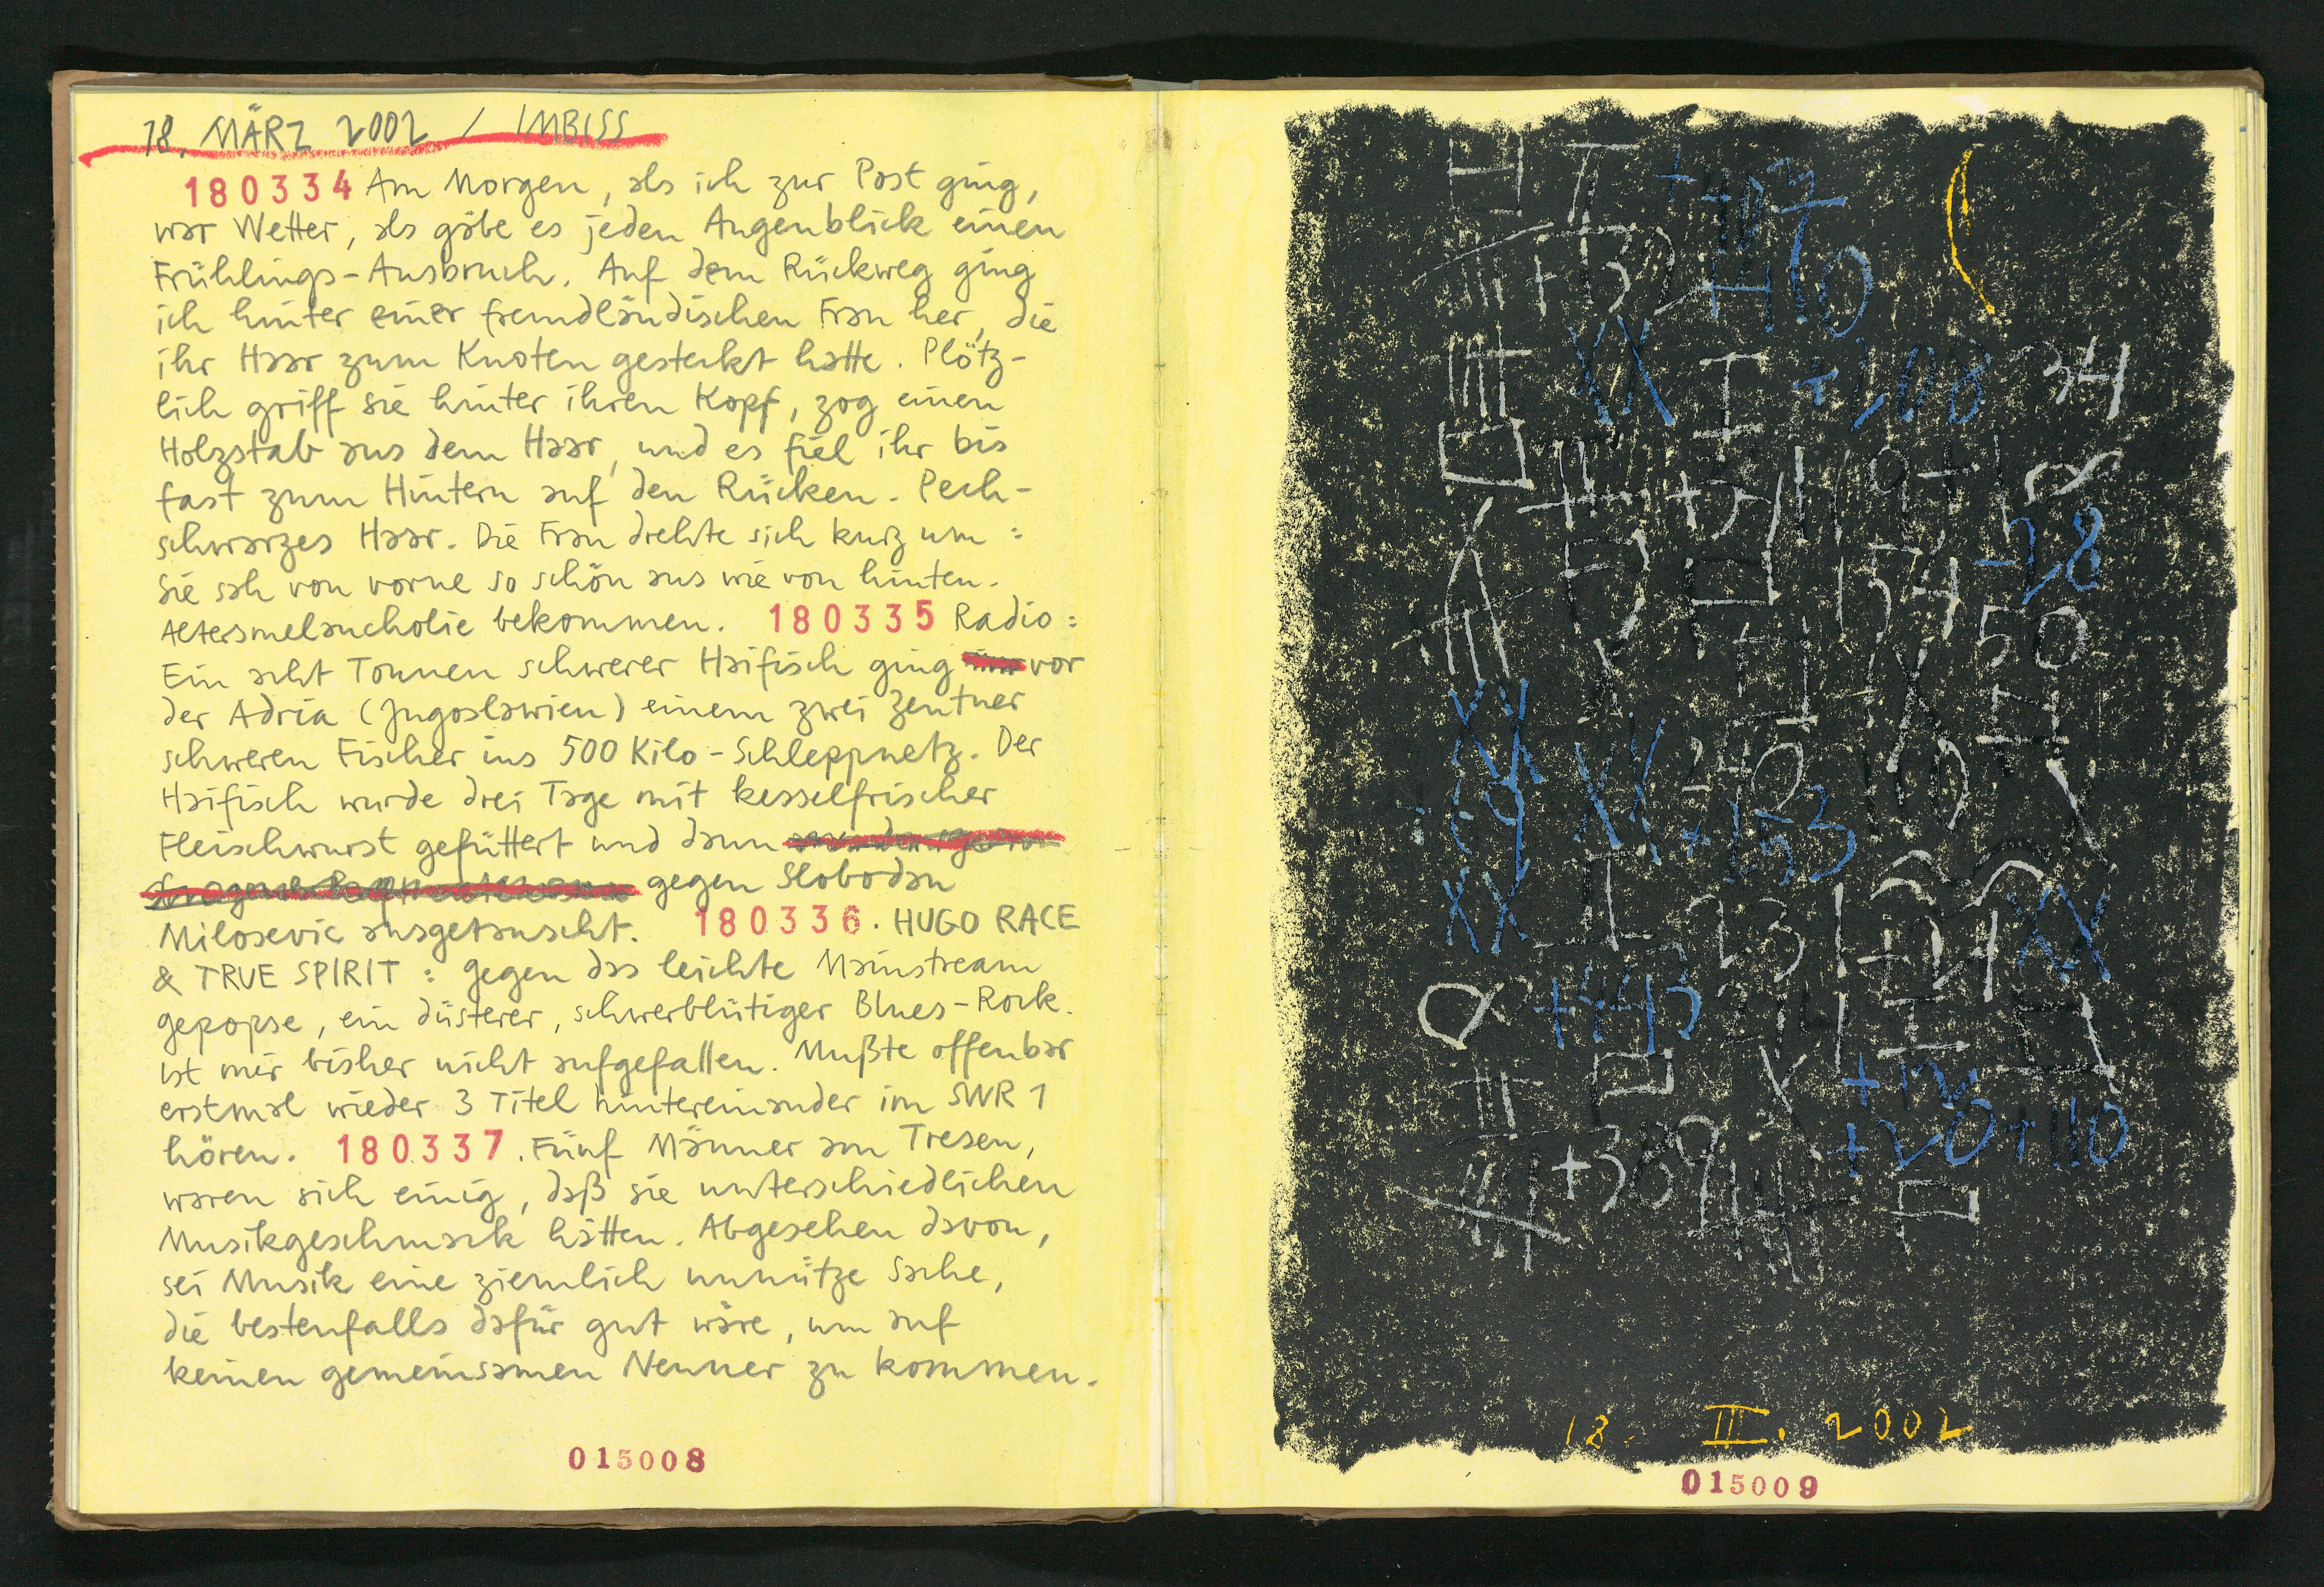 18. MÄRZ 2002 / IMBISS
180334 Am Morgen, als ich zur Post ging,
war Wetter, als gäbe es jeden Augenblick einen
Frühlings-Ausbruch. Auf dem Rückweg ging
ich hinter einer fremdländischen Frau her, die
ihr Haar zum Knoten gesteckt hatte. Plötz-
lich griff sie hinter ihren Kopf, zog einen
Holzstab aus dem Haar, und es fiel ihr bis
fast zum Hintern auf den Rücken. Pech-
schwarzes Haar. Die Frau drehte sich kurz um:
Sie sah von vorne so schön aus wie von hinten.
Altersmelancholie bekommen. 180335 Radio:
Ein acht Tonnen schwerer Haifisch ging vor
der Adria (Jugoslawien) einem zwei Zentner
schweren Fischer ins 500 Kilo-Schleppnetz. Der
Haifisch wurde drei Tage mit kesselfrischer
Fleischwurst gefüttert und dann
gegen Slobodan
Milosevic ausgetauscht. 180336. HUGO RACE
& TRUE SPIRIT: Gegen das leichte Mainstream
gepopse, ein düsterer, schwerblütiger Blues-Rock.
Ist mir bisher nicht aufgefallen. Mußte offenbar
erstmal wieder 3 Titel hintereinander im SWR 1
hören. 180337. Fünf Männer am Tresen,
waren sich einig, daß sie unterschiedlichen
Musikgeschmack hätten. Abgesehen davon,
sei Musik eine ziemlich unnütze Sache,
die bestenfalls dafür gut wäre, um auf
keinen gemeinsamen Nenner zu kommen.
015008
+407
+132 +410
XX I +208 34
+37 119+1
154 -28
50
X X
XX 240 110
:69 XX +153 X
XX I 231 +21 XX
+443 214 I
X +12
+389 +20+110
18. III. 2002
015009